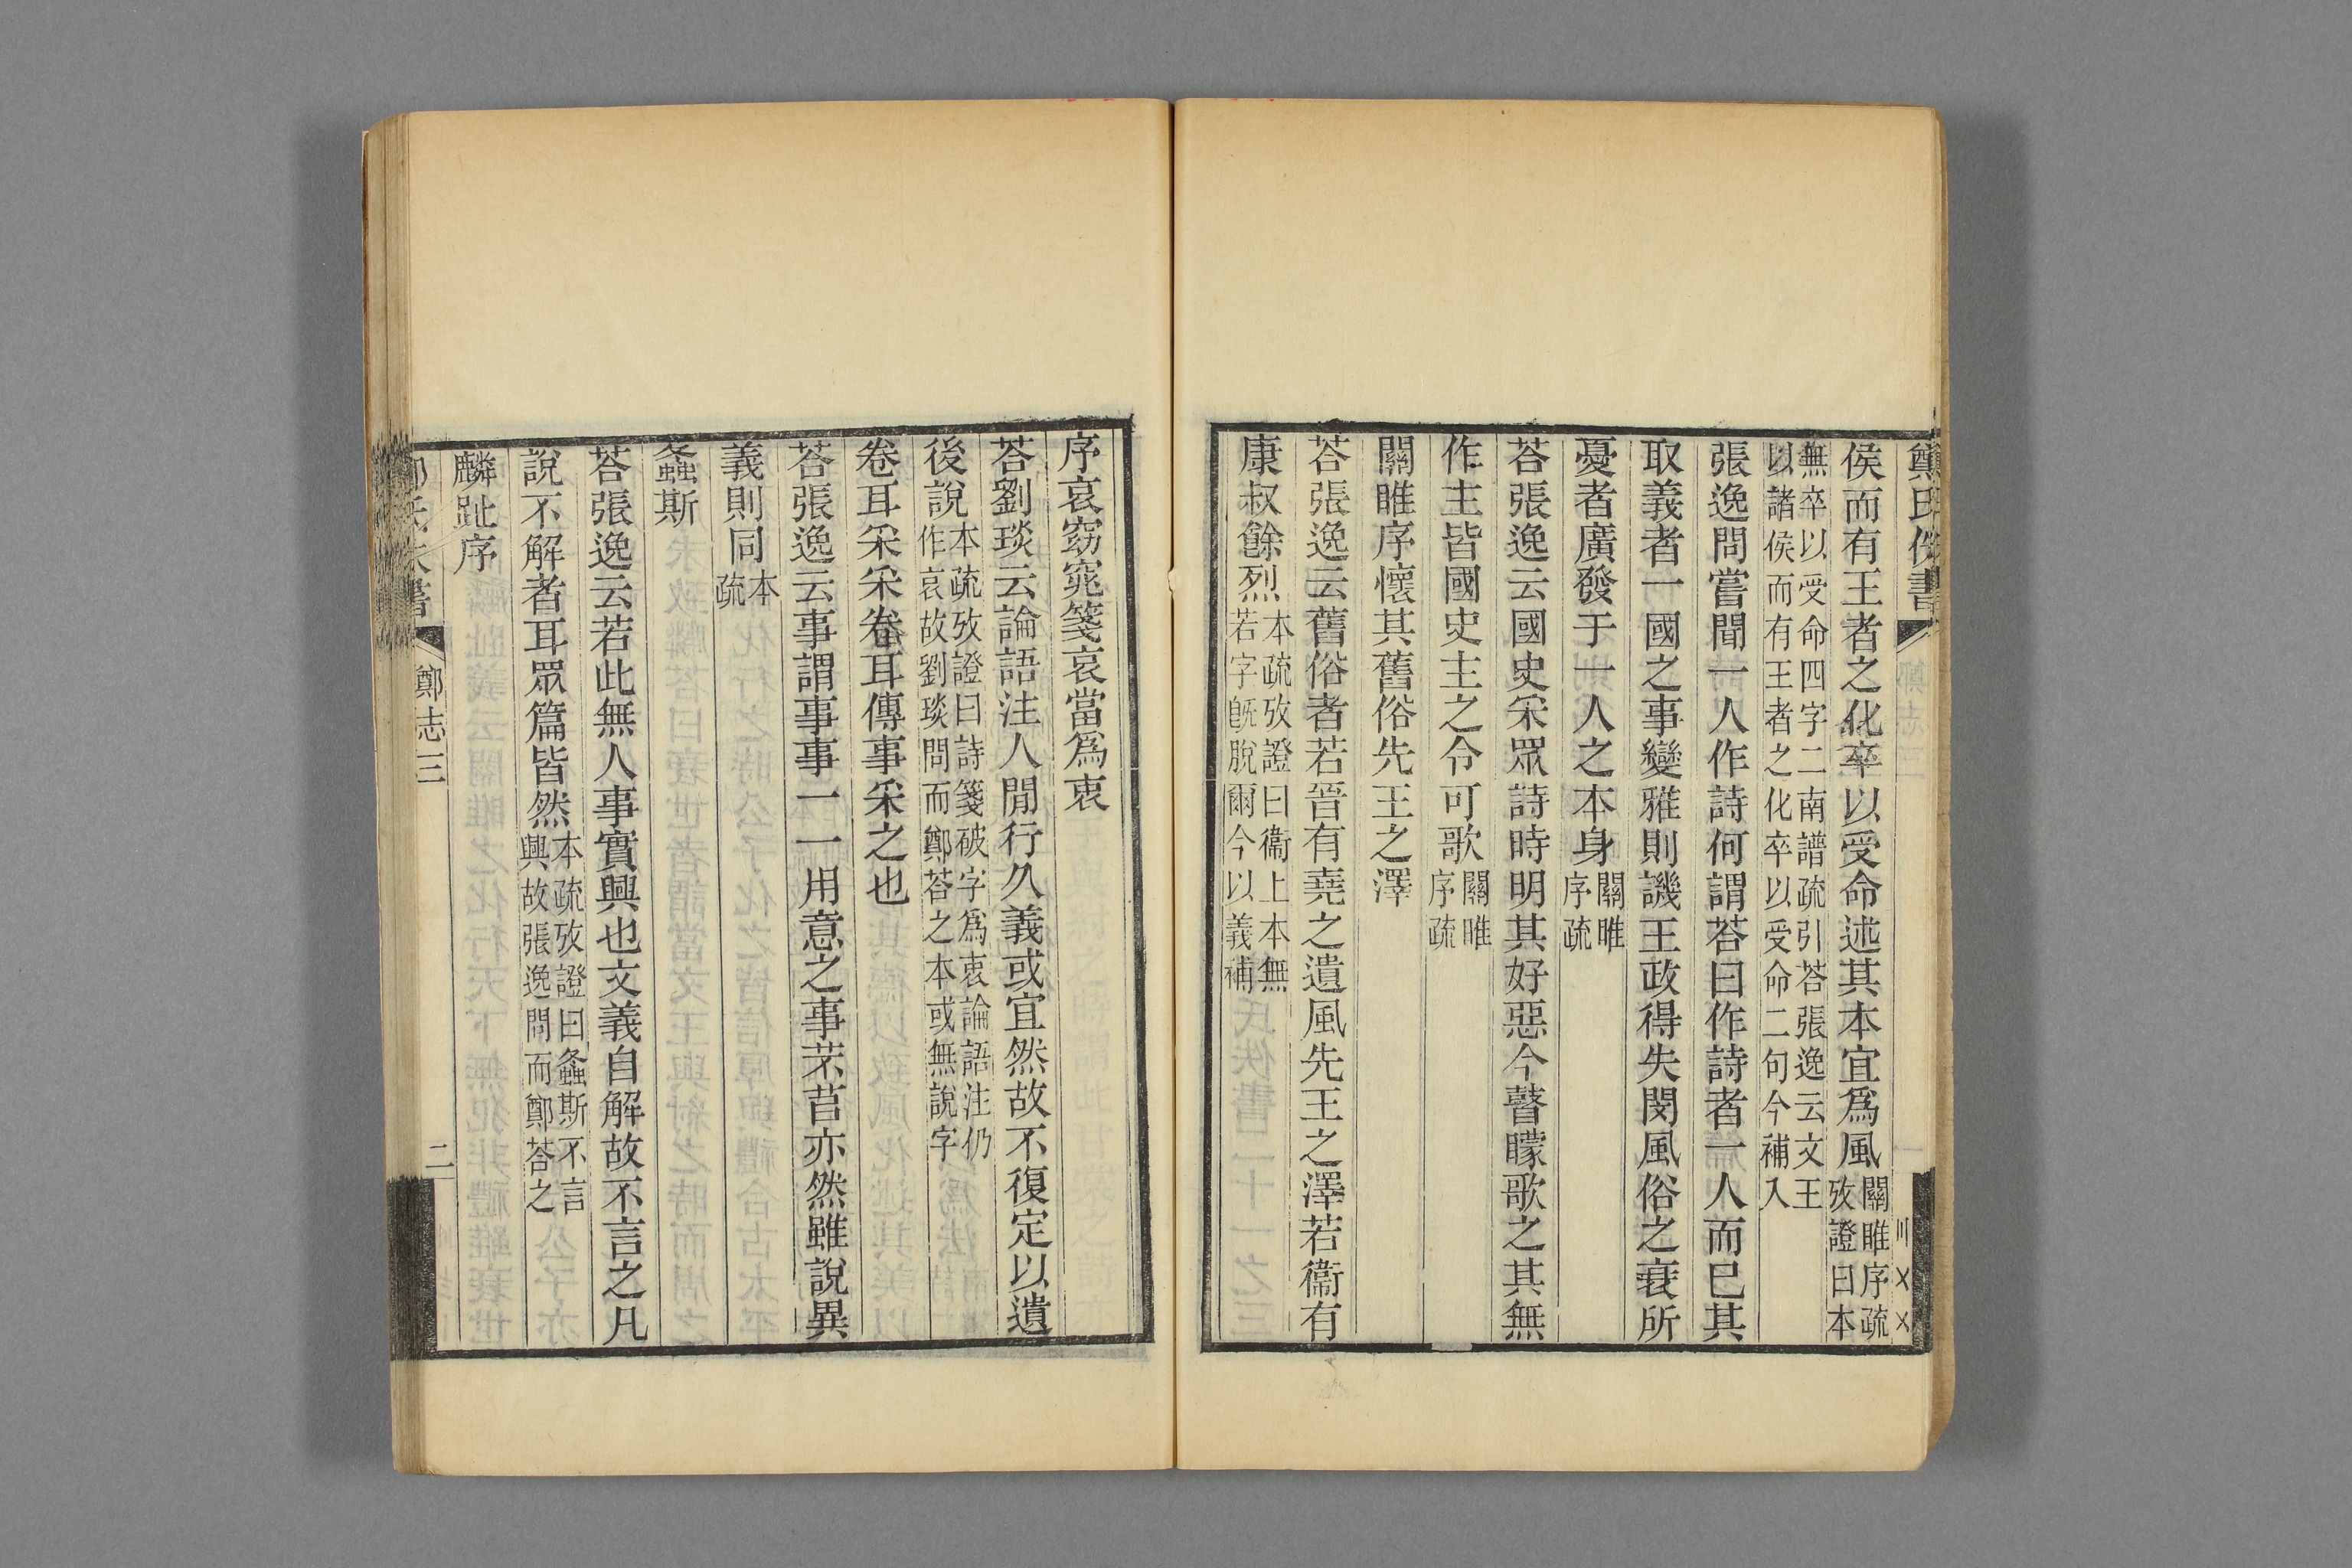 鄭氏佚書
侯而有王者之化卒以受命述其本宜爲風關睢序疏攷證曰本
無卒以受命四字二南譜疏引荅張逸云文王以諸侯而有王者之化卒以受命二句今補入
張逸問嘗聞一人作詩何謂荅曰作詩者一人而已其
取義者一國之事變雅則譏王政得失閔風俗之衰所
憂者廣發于一人之本身關睢序疏
荅張逸云國史采眾詩時明其好惡令瞽矇歌之其無
作主皆國史主之令可歌關睢序疏
關睢序懷其舊俗先王之澤
荅張逸云舊俗者若晉有堯之遺風先王之澤若衞有
康叔餘烈本疏攷證曰衞上本無若字旣脫爾今以義補
序哀窈窕箋哀當爲衷
荅劉琰云論語注人閒行久義或宜然故不復定以遺
後說本疏攷證曰詩箋破字爲衷論語注仍作哀故劉琰問而鄭荅之本或無說字
卷耳采采卷耳傳事采之也
荅張逸云事謂事事一一用意之事芣苢亦然雖說異
義則同本疏
螽斯
荅張逸云若此無人事實興也文義自解故不言之凡
說不解者耳眾篇皆然本疏攷證曰螽斯不言興故張逸問而鄭荅之
麟趾序
鄭志三
二